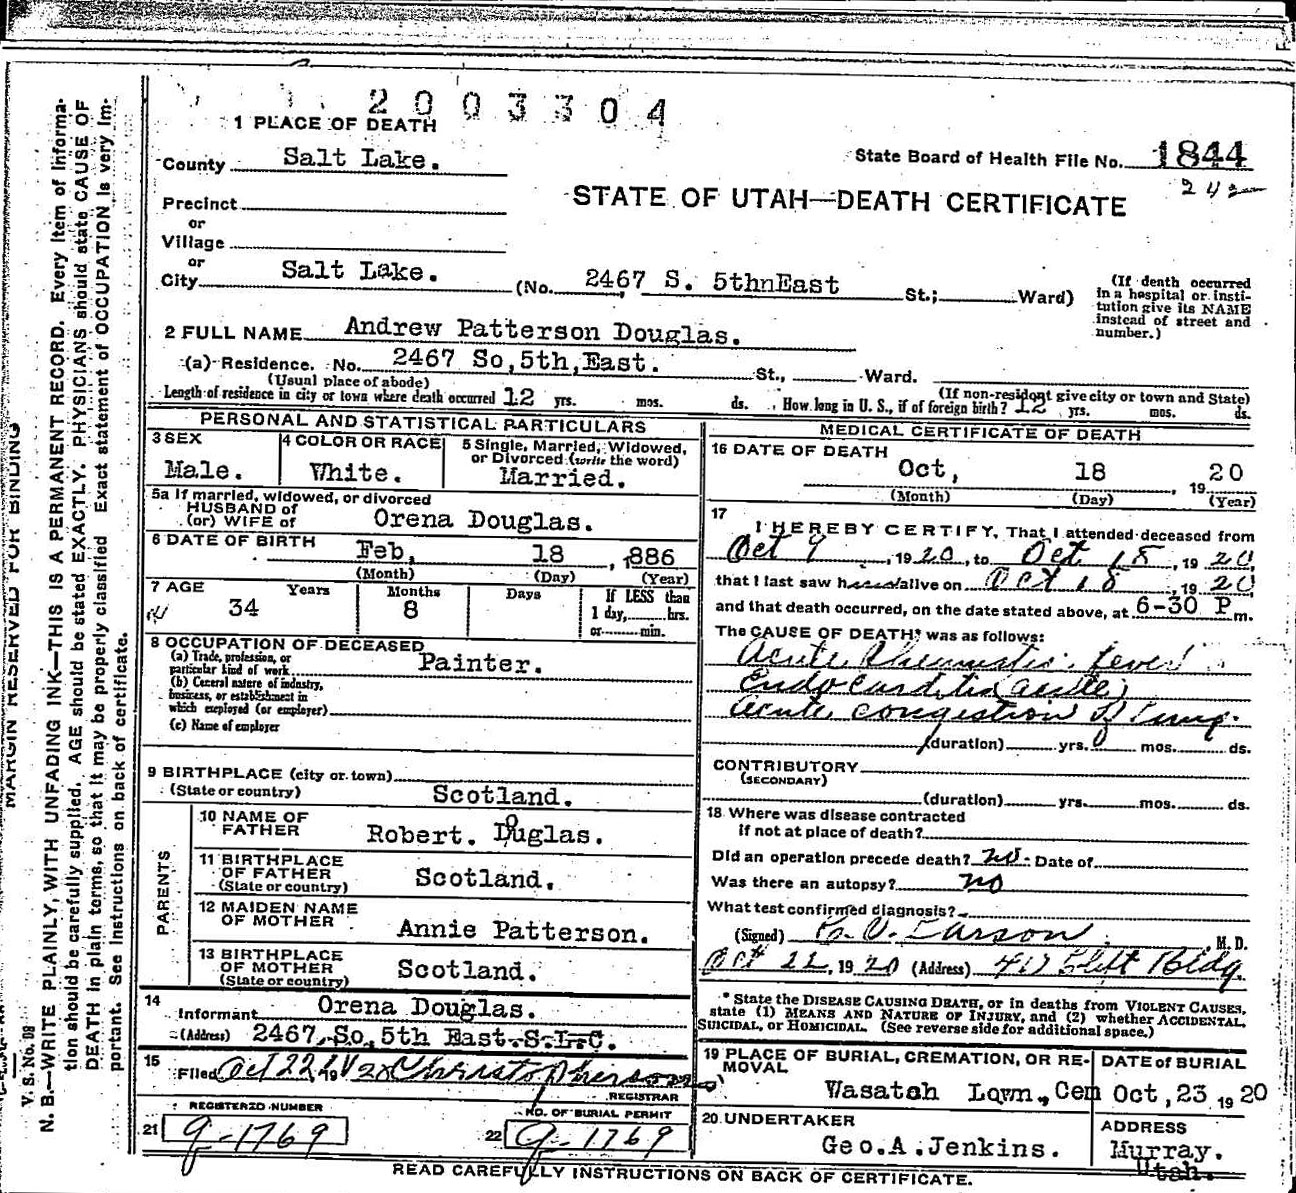 2003304
1 PLACE OF DEATH
County Salt Lake.
State Board of Health File No. 1844
242
STATE OF UTAH—DEATH CERTIFICATE
Precinct
or
Village
or
City Salt Lake. (No. 2467 S. 5thnEast St.; Ward)
(If death occurred in a hospital or insti-
tution give its NAME
instead of street and
number.)
2 FULL NAME Andrew Patterson Douglas.
(a) Residence. No. 2467 So,5th,East. St., Ward.
(Usual place of abode) (If non-resident give city or town and State)
Length of residence in city or town where death occurred 12 yrs. mos. ds. How long in U. S., if of foreign birth? 12 yrs. mos. ds.
PERSONAL AND STATISTICAL PARTICULARS
3 SEX Male.
4 COLOR OR RACE White.
5 Single, Married, Widowed,
or Divorced (write the word)
Married.
5a If married, widowed, or divorced
HUSBAND of
(or) WIFE of Orena Douglas.
6 DATE OF BIRTH Feb, 18 , 1886
(Month) (Day) (Year)
7 AGE Years Months Days If LESS than
34 8 1 day, hrs.
or min.
8 OCCUPATION OF DECEASED
(a) Trade, profession, or
particular kind of work Painter.
(b) General nature of industry,
business, or establishment in
which employed (or employer)
(c) Name of employer
9 BIRTHPLACE (city or town)
(State or country) Scotland.
PARENTS
10 NAME OF
FATHER Robert. Duglas.
o
11 BIRTHPLACE
OF FATHER
(State or country) Scotland.
12 MAIDEN NAME
OF MOTHER Annie Patterson.
13 BIRTHPLACE
OF MOTHER
(State or country) Scotland.
14
Informant Orena Douglas.
(Address) 2467 So 5th East S.L.C.
15
Filed Oct 22, 1920 Christopherson
REGISTRAR
REGISTERED NUMBER
21 9-1769
NO. OF BURIAL PERMIT
22 9-1769
MEDICAL CERTIFICATE OF DEATH
16 DATE OF DEATH
Oct, 18 , 19 20
(Month) (Day) (Year)
17
I HEREBY CERTIFY, That I attended deceased from
Oct 9 , 1920, to Oct 18 , 19 20,
that I last saw h alive on Oct 18 , 19 20
and that death occurred, on the date stated above, at 6-30 P m.
The CAUSE OF DEATH* was as follows:
Acute Rheumatic fever
Endocarditis (acute)
Acute congestion of lung.
(duration) yrs. mos. ds.
CONTRIBUTORY
(SECONDARY)
(duration) yrs. mos. ds.
18 Where was disease contracted
if not at place of death?
Did an operation precede death? no. Date of
Was there an autopsy? no
What test confirmed diagnosis?
(Signed) Larson , M. D.
Oct 22, 19 20 (Address) 417 Clift Bldg.
* State the DISEASE CAUSING DEATH, or in deaths from VIOLENT CAUSES,
state (1) MEANS AND NATURE OF INJURY, and (2) whether ACCIDENTAL,
SUICIDAL, or HOMICIDAL. (See reverse side for additional space.)
19 PLACE OF BURIAL, CREMATION, OR RE-
MOVAL
Wasatch Lawn, Cem
DATE of BURIAL
Oct, 23, 1920
20 UNDERTAKER
Geo.A.Jenkins.
ADDRESS
Murray.
Utah.
READ CAREFULLY INSTRUCTIONS ON BACK OF CERTIFICATE.
MARGIN RESERVED FOR BINDING
V. S. No.
N. B.—WRITE PLAINLY, WITH UNFADING INK—THIS IS A PERMANENT RECORD. Every item of informa-
tion should be carefully supplied. AGE should be stated EXACTLY. PHYSICIANS should state CAUSE OF
DEATH in plain terms, so that it may be properly classified. Exact statement of OCCUPATION is very im-
portant. See instructions on back of certificate.